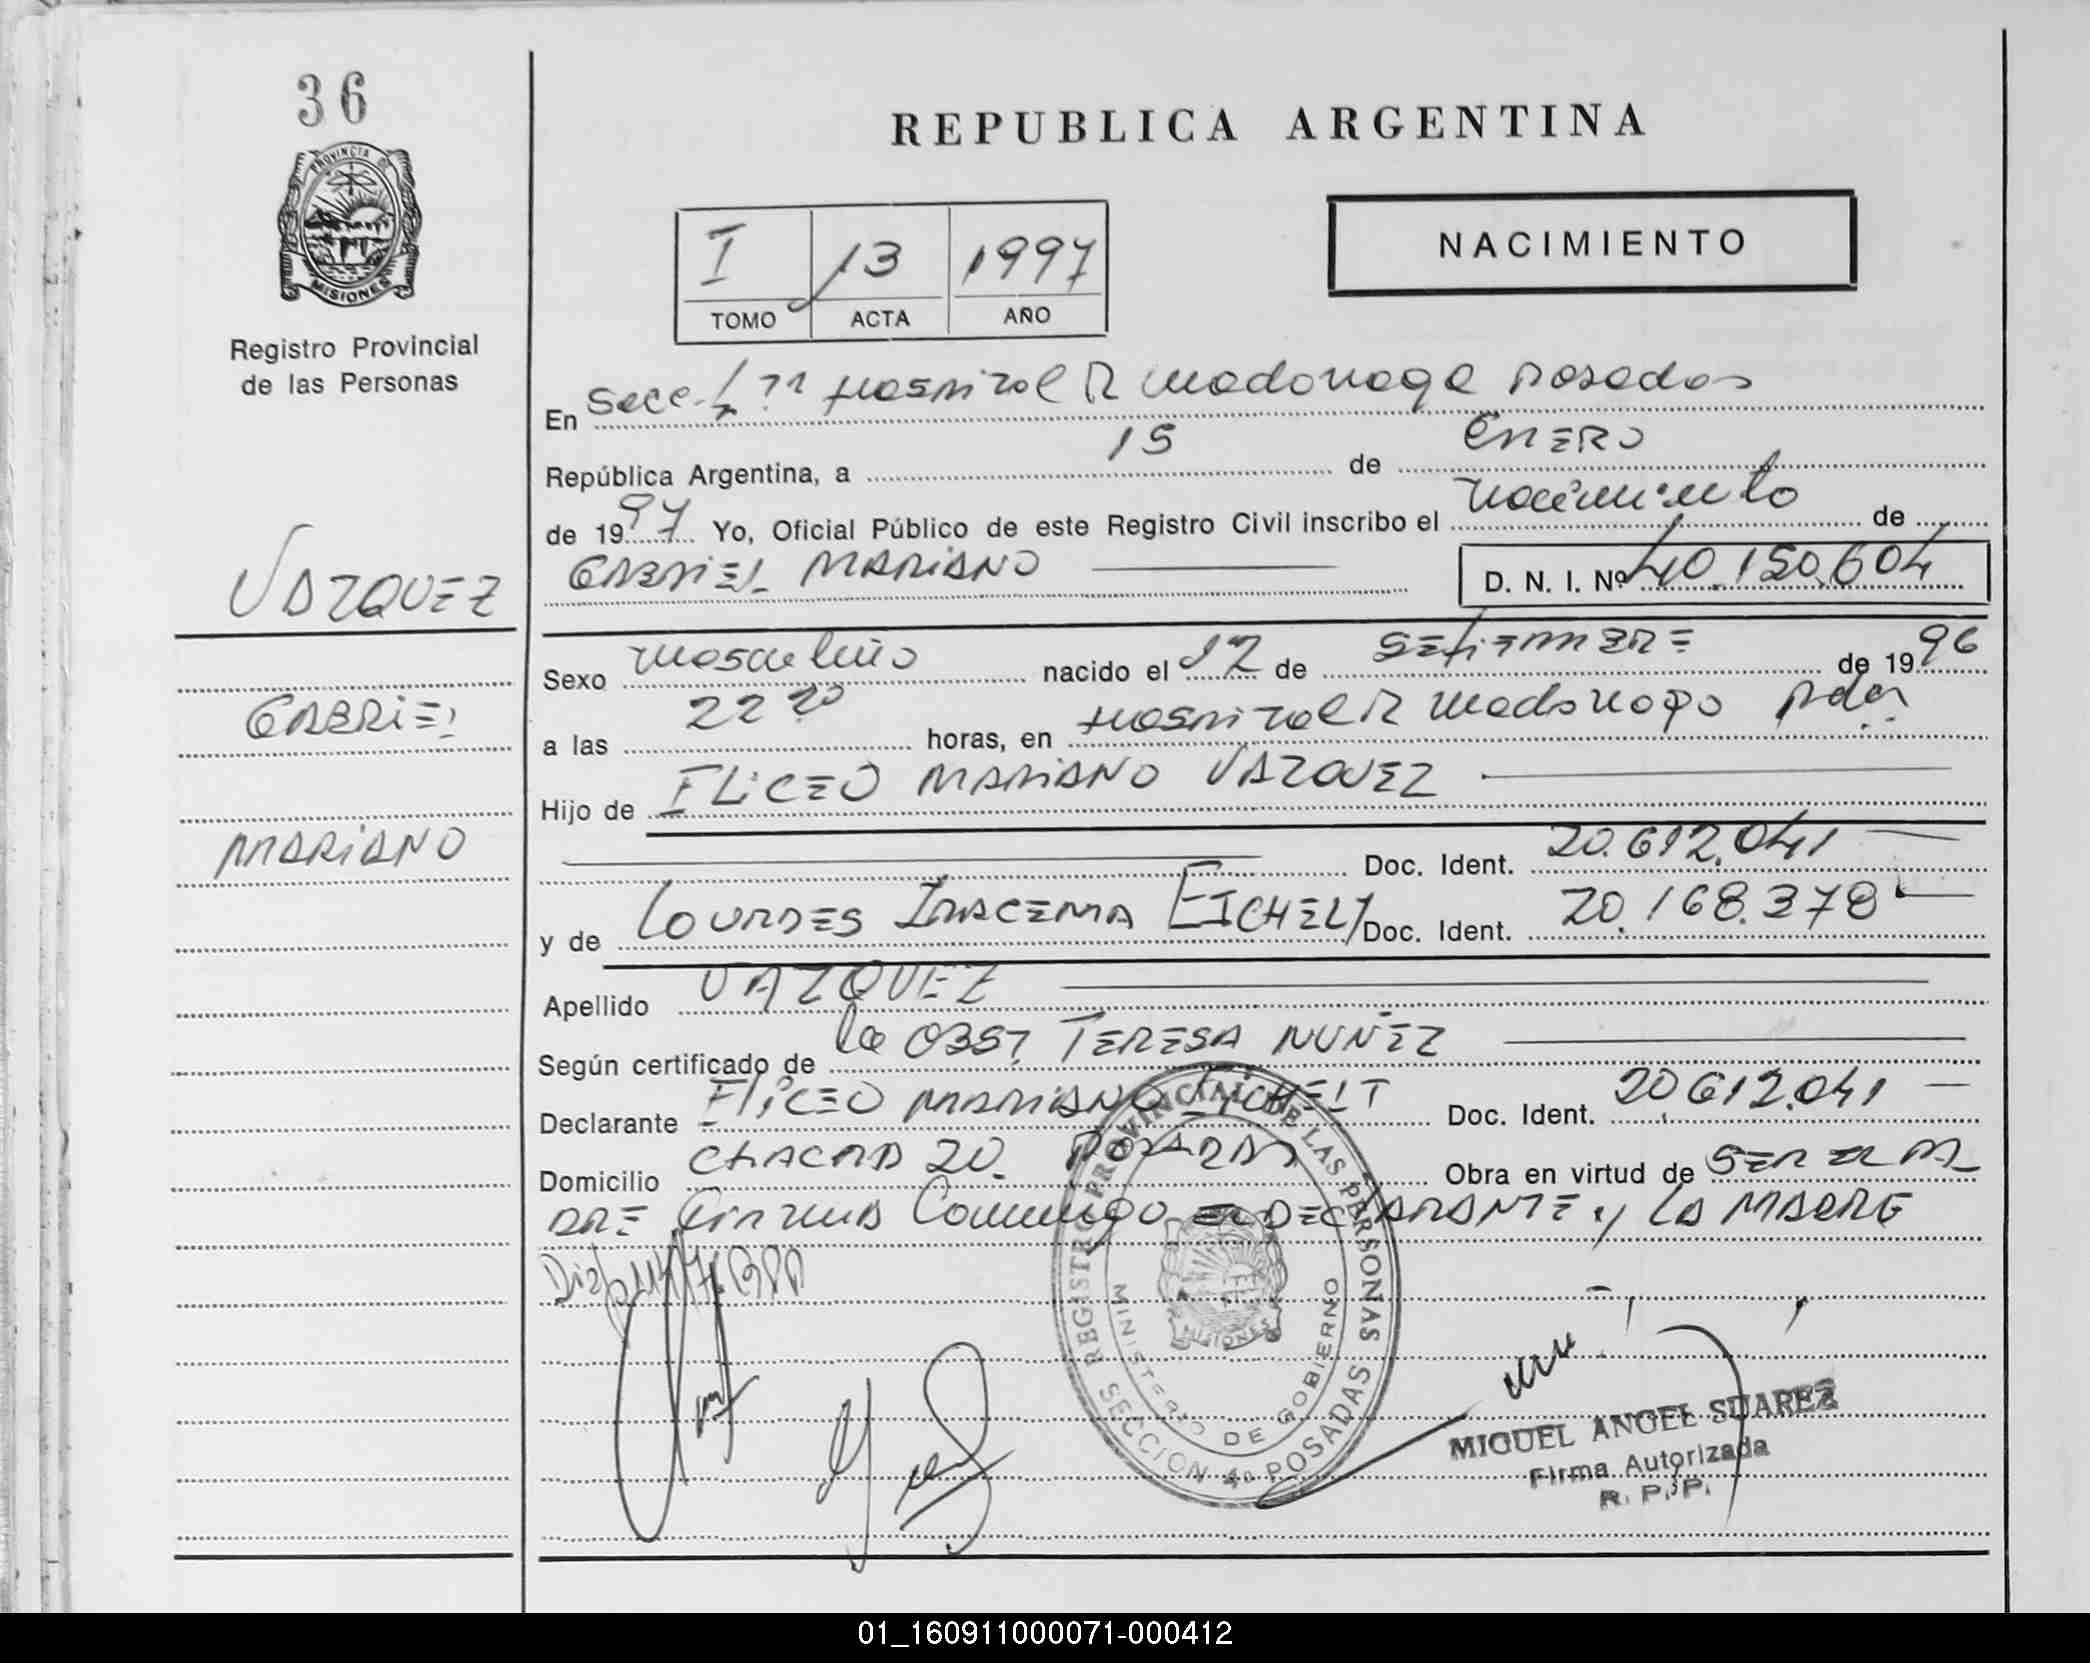 36
PROVINCIA DE
MISIONES
Registro Provincial
de las Personas
REPUBLICA ARGENTINA
NACIMIENTO
I 13 1997
TOMO ACTA AÑO
En Secc. Hospital R Madariaga Posadas
República Argentina, a 15 de ENERO
de 1997 Yo, Oficial Público de este Registro Civil inscribo el nacimiento de
GABRIEL MARIANO D. N. I. Nº 40.150.604
VAZQUEZ
GABRIEL
MARIANO
Sexo masculino nacido el 12 de SETIEMBRE de 1996
a las 22 20 horas, en Hospital R Madariaga Pdas
Hijo de ELICEO MARIANO VAZQUEZ
Doc. Ident. 20.612.041
y de LOURDES IRACEMA EICHELT Doc. Ident. 20.168.378
Apellido VAZQUEZ
Según certificado de la OBST TERESA NUÑEZ
Declarante ELICEO MARIANO EICHELT Doc. Ident. 20 612.041
Domicilio CHACRA 20. POSADAS Obra en virtud de SER EL PA
DRE Firma Conmigo EL DECLARANTE y LA MADRE
REGISTRO PROVINCIAL DE LAS PERSONAS
MINISTERIO DE GOBIERNO
MISIONES
SECCION 4a POSADAS
MIGUEL ANGEL SUAREZ
Firma Autorizada
R. P. P.
01_160911000071-000412